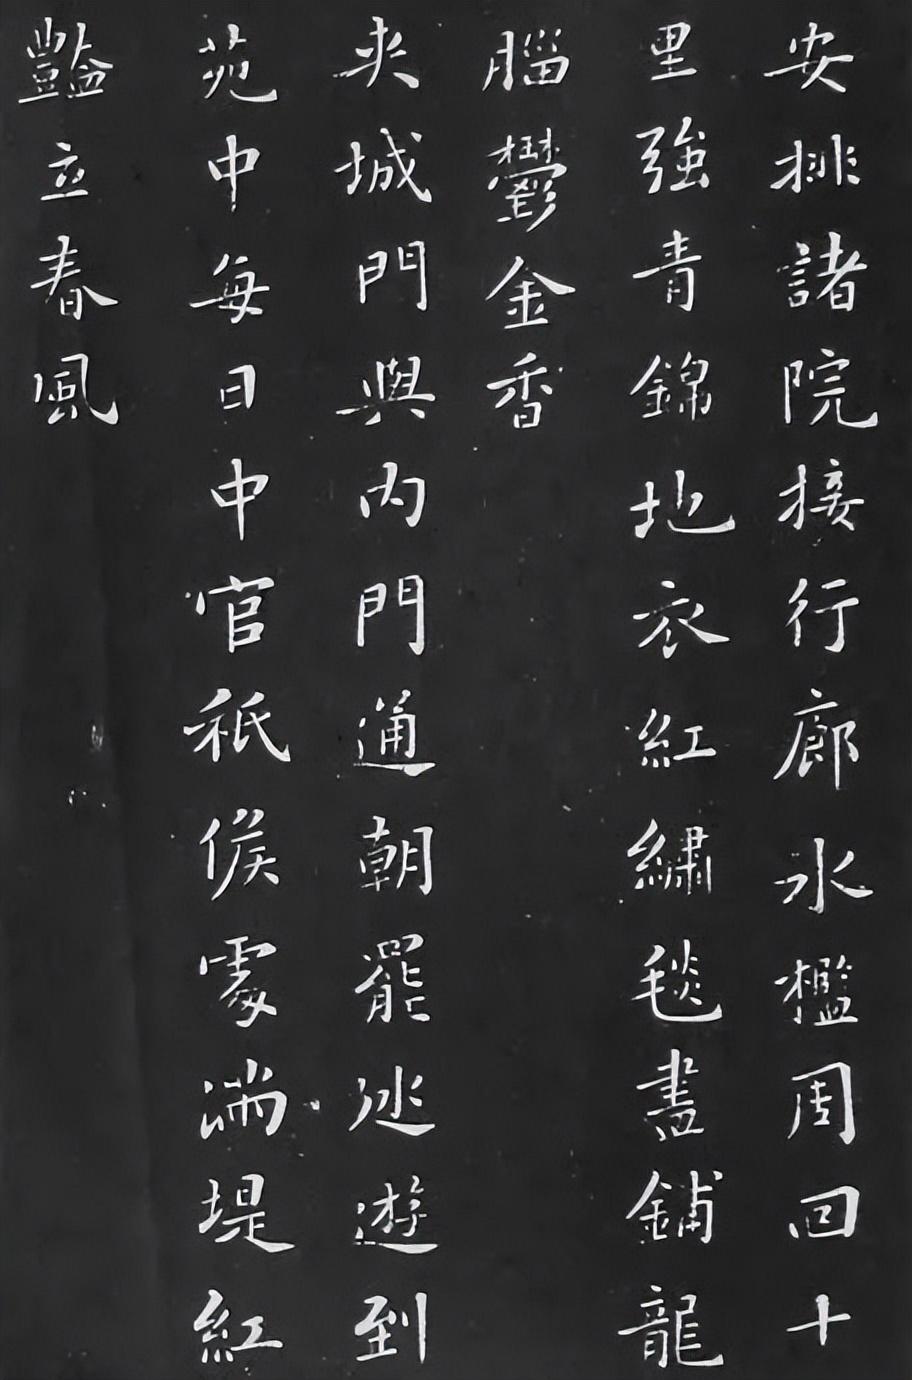 安排諸院接行廊水檻周回十
里強青錦地衣紅繡毯盡鋪龍
腦鬱金香
夾城門與內門通朝罷巡遊到
苑中每日中官祗候處滿堤紅
豔立春風